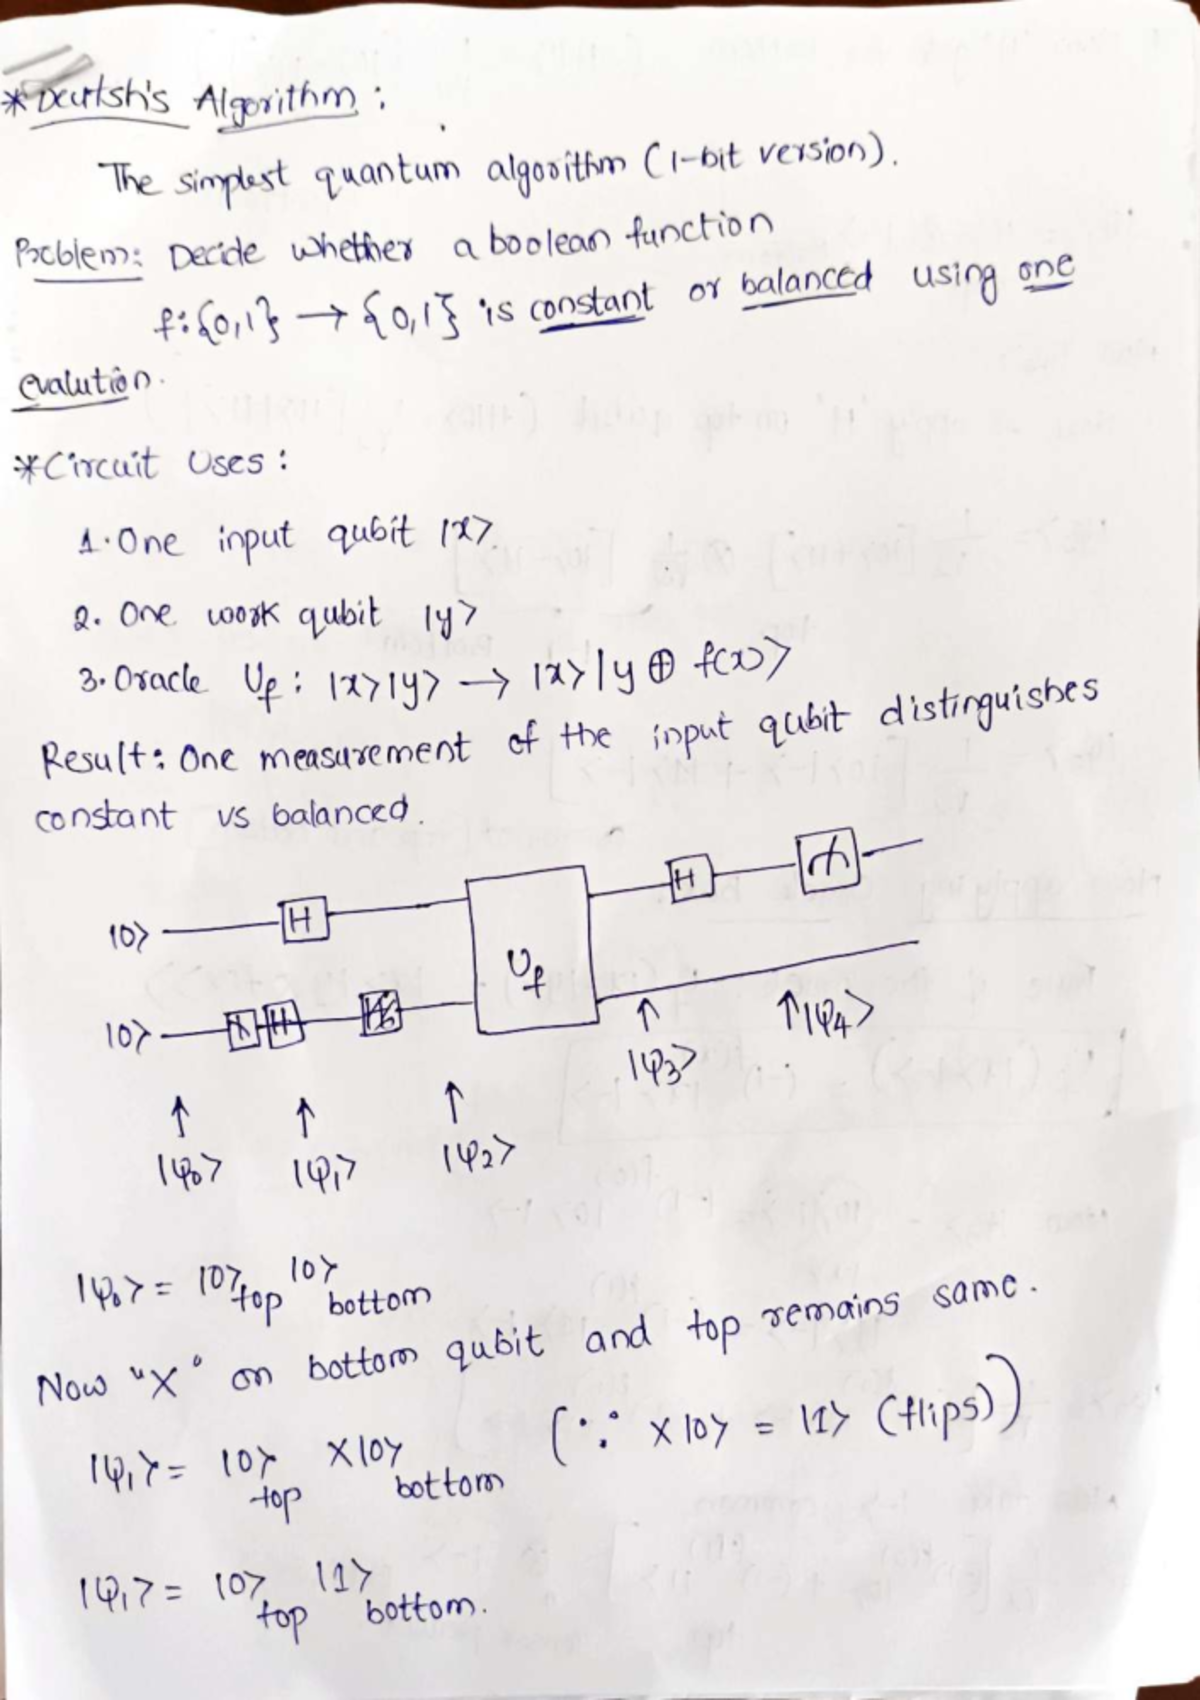 *Deutsh's Algorithm :
The simplest quantum algorithm (1-bit version).
Problem: Decide whether a boolean function
f:{0,1} → {0,1} is constant or balanced using one
evalution.
*Circuit Uses :
1. One input qubit |x>
2. One work qubit |y>
3. Oracle Uf : |x>|y> → |x>|y ⊕ f(x)>
Result: One measurement of the input qubit distinguishes
constant vs balanced.
|0> H Uf H
|0> X H
|φ3> |φ4>
|φ0> |φ1> |φ2>
|φ0> = |0>top |0>bottom
Now "X" on bottom qubit and top remains same.
|φ1> = |0>top X|0>bottom (∵ X|0> = |1> (flips))
|φ1> = |0>top |1>bottom.